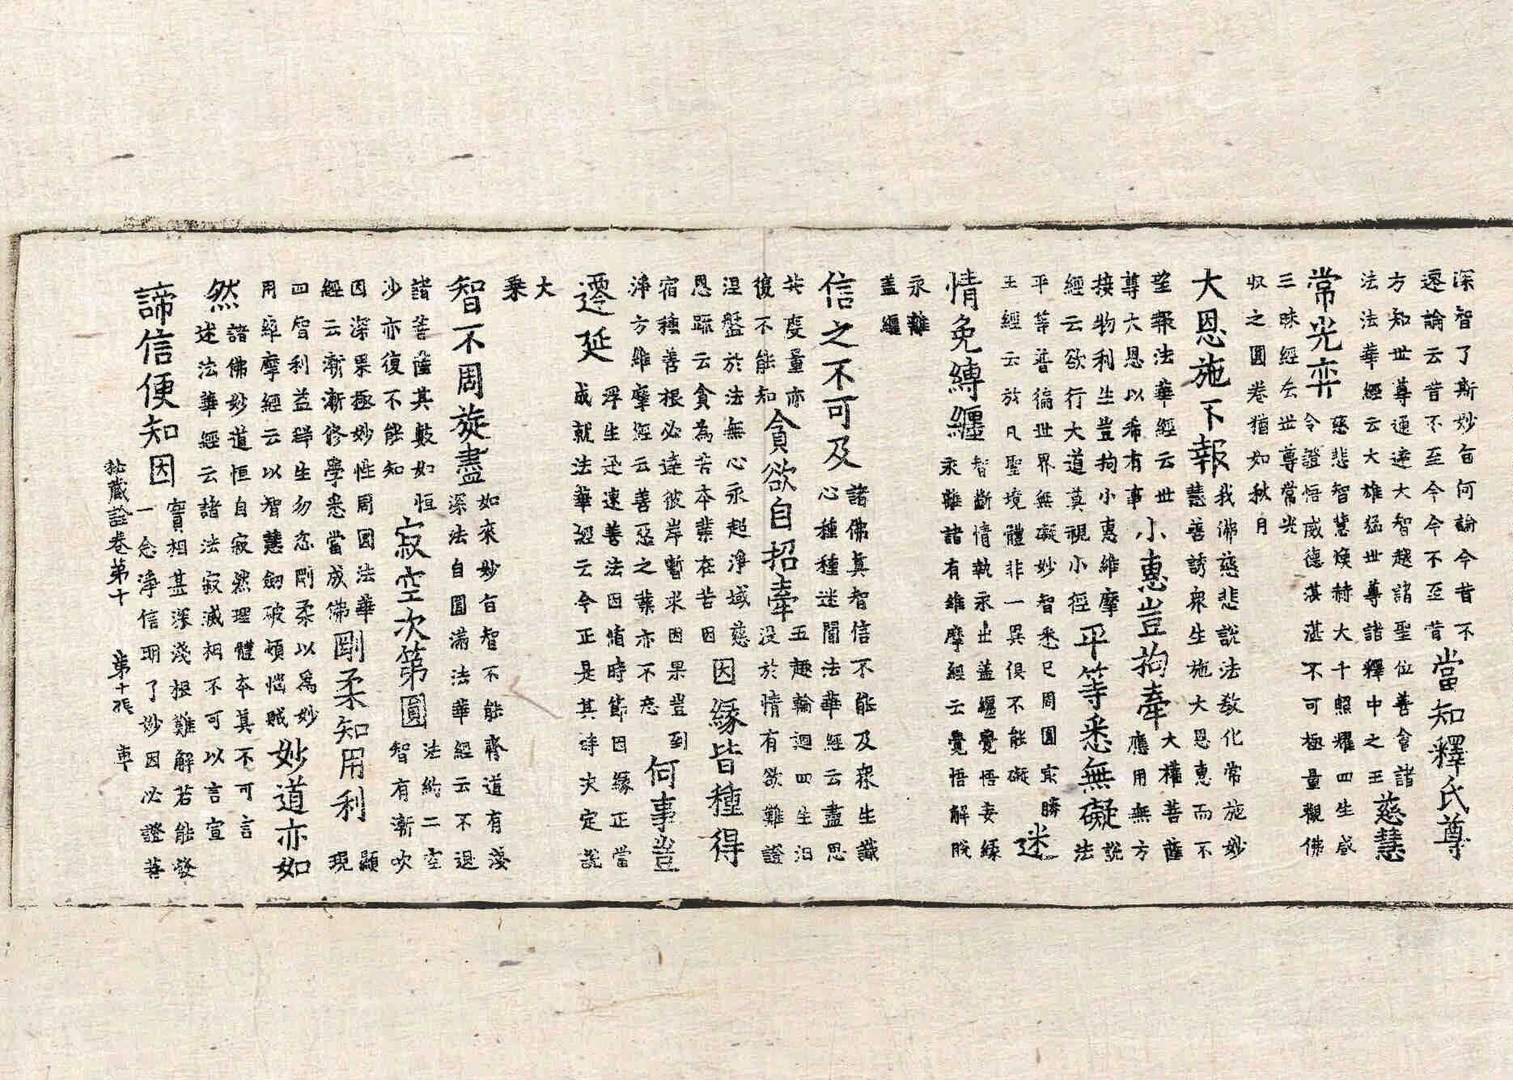 深智了斯妙旨何論今昔不
遷論云昔不至今今不至昔
當知釋氏尊
方知世尊通達大智越諸聖位善會諸
法法華經云大雄猛世尊諸釋中之王
慈慧
常光弈
慈悲智慧煥赫大千照耀四生咸
令證悟威德湛湛不可極量觀佛
三昧經云世尊常光
収之圓卷猶如秋月
大恩施下報
我佛慈悲說法教化常施妙
慧善誘衆生施大恩惠而不
望報法華經云世
尊大恩以希有事
小惠豈拘牽
大權菩薩
應用無方
接物利生豈拘小惠維摩
經云欲行大道莫視小徑
平等悉無礙
說
法
平等普徧世界無礙妙智悉已周圓㝡勝
王經云於凡聖境體非一異俱不能礙
迷
情免縛纏
智斷情執永出盖纏覺悟妄縁
永離諸有維摩經云覺悟解脫
永離
盖纏
信之不可及
諸佛真智信不能及衆生識
心種種迷闇法華經云盡思
共度量亦
復不能知
貪欲自招牽
五趣輪迴四生汩
没於情有欲難證
涅盤於法無心永超淨域慈
恩䟽云貪為苦本業在苦因
因縁皆種得
宿種善根必達彼岸暫求因果豈到
淨方維摩經云善惡之業亦不忘
何事豈
遷延
浮生迅速善法因脩時節因縁正當
成就法華經云今正是其時决定說
大
乗
智不周旋盡
如來妙旨智不能齊道有淺
深法自圓滿法華經云不退
諸菩薩其數如恒
少亦復不能知
寂空次第圓
法約二空
智有漸次
因深果極妙性周圓法華
經云漸漸修學悉當成佛
剛柔知用利
顯
現
四智利益群生勿忘剛柔以爲妙
用維摩經云以智慧劒破煩惱賊
妙道亦如
然
諸佛妙道恒自寂然理體本真不可言
述法華經云諸法寂滅相不可以言宣
諦信便知因
實相甚深淺根難解若能發
一念淨信明了妙因必證菩
秘藏詮卷第十 第十張 車